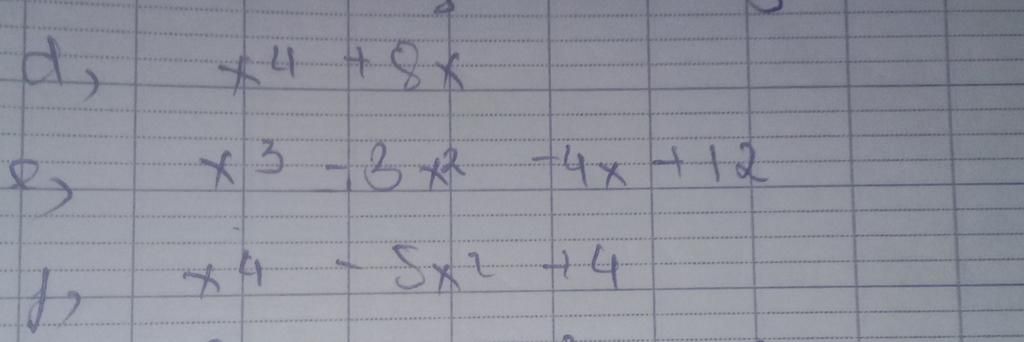 d, x⁴ + 8x
e, x³ - 3x² - 4x + 12
f, x⁴ - 5x² + 4